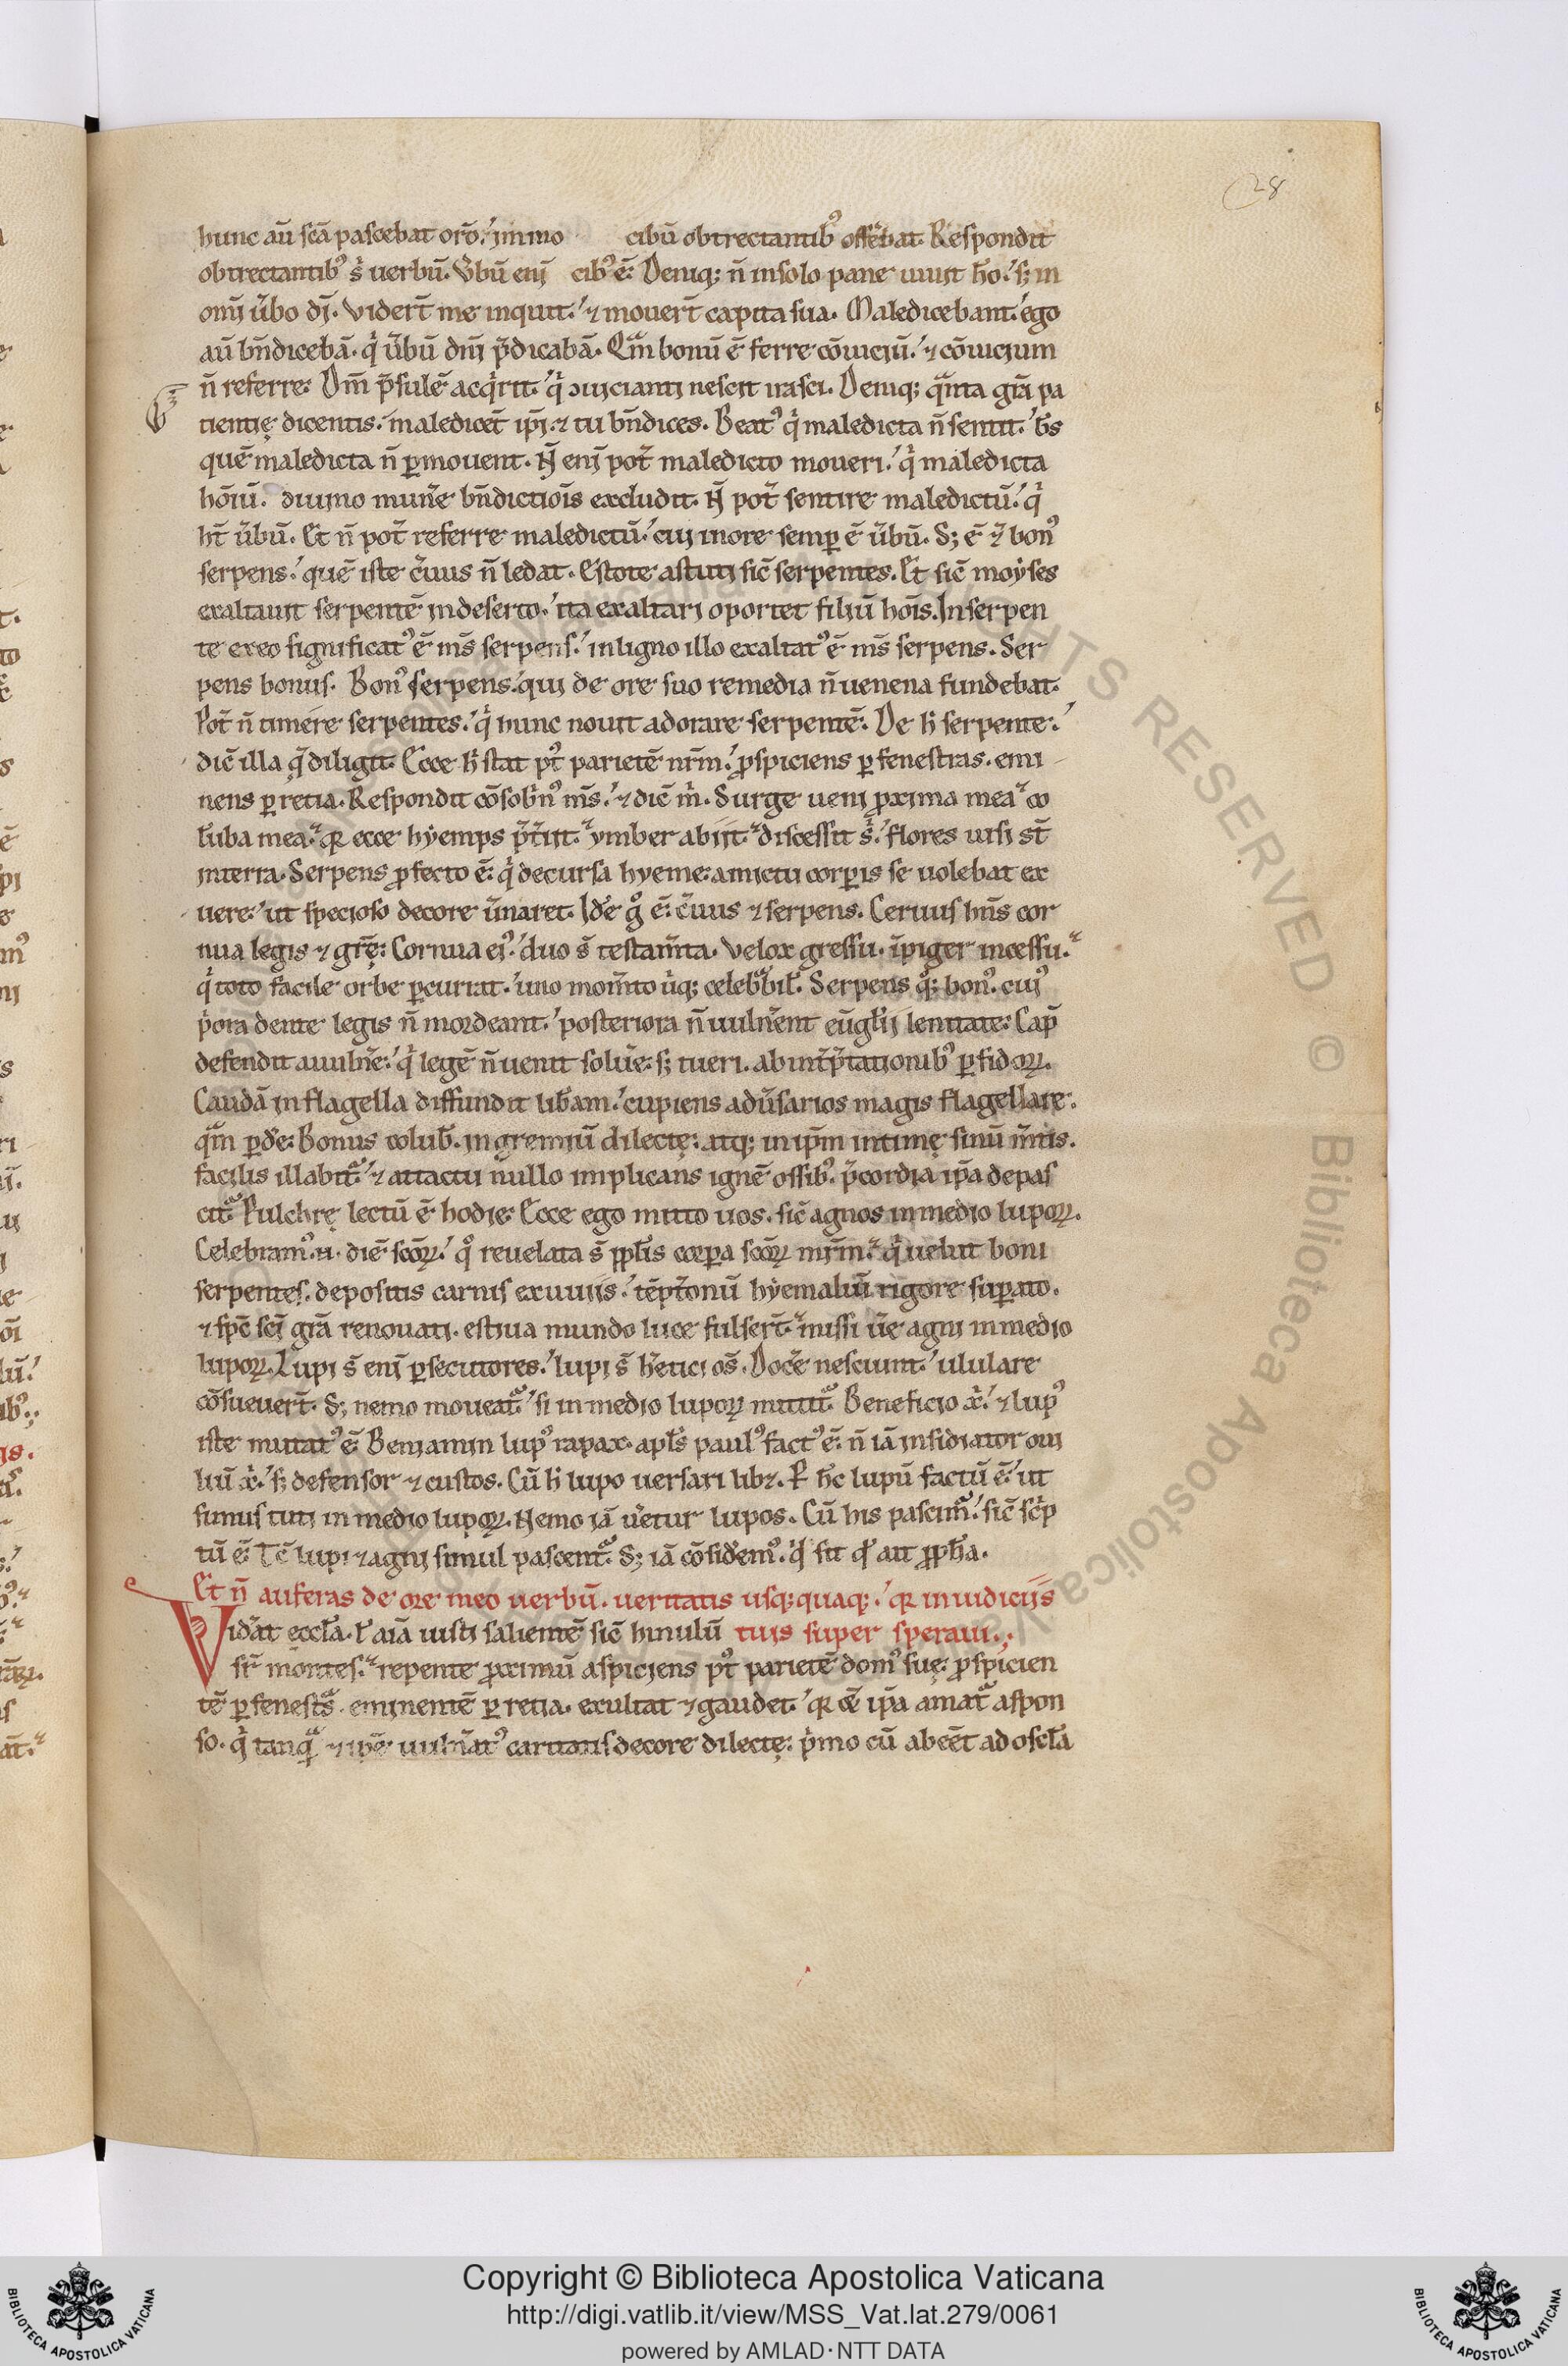 28
hunc aū scā pascebat or̄o. immo cibū obtrectantibꝰ offerebat. Respondit
obtrectantibꝰ s; uerbū. Vbū eni cibꝰ ē. Deniq; n̄ insolo pane uiuit h̄o. s; in
omī ūbo dī. Viderт̄ me inquit. ⁊ mouer̄t capita sua. Maledicebant. ego
aū bn̄dicebā. q̇ ūbū dnī p̄dicabā. Qm̄ bonū ē ferre cōuiciū. ⁊ cōuicium
n̄ referre. Dm̄ p̄sulē acq̇rit. q̇ ↄuicianti nescit irasci. Deniq; qͣnta grā pa
tientię dicentis. maledicēt ip̄i. ⁊ tu bn̄dices. Beatꝰ q̇ maledicta n̄ sentit. b̄s
quē maledicta n̄ ꝑmouent. N̄ eni pot̄ maledicto moueri. q̇ maledicta
hōiū. diuino mun̄e bn̄dictiōis excludit. N̄ pot̄ sentire maledictū. q̇
ht̄ ūbū. Et n̄ pot̄ referre maledictū. cui inore semꝑ ē ūbū. S; ē ⁊ bonꝰ
serpens. quē iste c̄uus n̄ ledat. Estote astuti sic̄ serpentes. Et sic̄ moyses
exaltauit serpentē indeserto. ita exaltari oportet filiū hoīs. Inserpen
te ereo significatꝰ ē ms̄ serpens. inligno illo exaltatꝰ ē ms̄ serpens. Ser
pens bonus. Bonꝰ serpens. qui de ore suo remedia n̄ uenena fundebat.
Pot̄ n̄ timere serpentes. q̇ hunc nouit adorare serpentē. De h̄ serpente.
dic̄ illa q̄ diligit. Ecce h̄ stat pꝰt parietē nr̄m. ꝓspiciens ꝑ fenestras. emi
nens ꝑ retia. Respondit cōsobr̄nꝰ ms̄. ⁊ dic̄ ṁ. Surge ueni ꝓxima mea. co
lūba mea. qr ecce hyemps p̄t̄iit. ymber abiit. discessit s;. flores uisi st̄
interra. Serpens ꝓfecto ē. q̇ decursa hyeme. amictu corꝑis se uolebat ex
uere. ut specioso decore ūnaret. Idē g° ē. c̄uus ⁊ serpens. Ceruus hn̄s cor
nua legis ⁊ gr̄ę. Cornua eiꝰ. duo s̄ testam̄ta. Velox gressu. īpiger incessu.
q̇ toto facile orbe ꝑcurrat. uno mom̄to ūq; celebͣbil'. Serpens q°; bonꝰ. cuiꝰ
p̄ora dente legis n̄ mordeant. posteriora n̄ uuln̄ent eūgl'ii lenitate. Cap̄
defendit auuln̄e. q̇ legē n̄ uenit solūe. s; tueri. ab int̄p̄tationibꝰ ꝑfidoꝝ.
Caudā in flagella diffundit lib̄am. cupiens adūsarios magis flagellare.
qm̄ ꝑde. Bonus colub̄. in gremiū dilectę. atq; in ip̄m intimę sinū m̄tis.
facilis illabit̄. ⁊ attactu nullo implicans ignē ossibꝰ. p̄cordia ip̄a depas
cit̄. Pulchrę lectū ē hodie. Ecce ego mitto uos. sic̄ agnos inmedio lupoꝝ.
Celebramꝰ .n. diē scōꝝ. q° reuelata s̄ ppl'is corpa scōꝝ mr̄m. q̇ uelut boni
serpentes. depositis carnis exuuiis. tēpt̄onū hyemaliū rigore suꝑato.
⁊ sp̄c scī grā renouati. estiua mundo luce fulser̄t. missi ūe agni inmedio
lupoꝝ. Lupi s̄ eni ꝑsecutores. lupi s̄ h̄etici os̄. Doc̄e nesciunt. ululare
cōsueuer̄t. S; nemo moueat̄. si in medio lupoꝝ mittit̄. Beneficio x̄. ⁊ lupꝰ
iste mutatꝰ ē. Beniamin lupꝰ rapax. apl's paulꝰ factꝰ ē. n̄ iā insidiator oui
liū x̄. s; defensor ⁊ custos. Cū h̄ lupo uersari lib⁊. P h̄c lupū factū ē. ut
simus tuti in medio lupoꝝ. Nemo iā ūetur lupos. Cū his pascim̄. sic̄ sc̄p
tū ē. Tc̄ lupi ⁊ agni simul pascent̄. S; iā cōsid̄emꝰ. q̇ sit qd̄ ait ꝓph̄a.
Et n̄ auferas de ore meo uerbū. ueritatis usq;quaq;. qr iniudiciis
Vid̄at eccl'a. l' aīā iusti salientē sic̄ hinulū tuis super speraui.
sr̄ montes. repente ꝓximū aspiciens pꝰt parietē domꝰ suę. ꝓspicien
tē ꝑ fenestͣs. eminentē ꝑ retia. exultat ⁊ gaudet. qr cē ip̄a amat̄ aspon
so. q̇ tanqͣ ⁊ ip̄e uuln̄atꝰ caritatis decore dilectę. p̄mo cū abeēt ad oscl'a
ALL RIGHTS RESERVED © Biblioteca Apostolica Vaticana
Copyright © Biblioteca Apostolica Vaticana
http://digi.vatlib.it/view/MSS_Vat.lat.279/0061
powered by AMLAD·NTT DATA
BIBLIOTECA APOSTOLICA VATICANA
BIBLIOTECA APOSTOLICA VATICANA